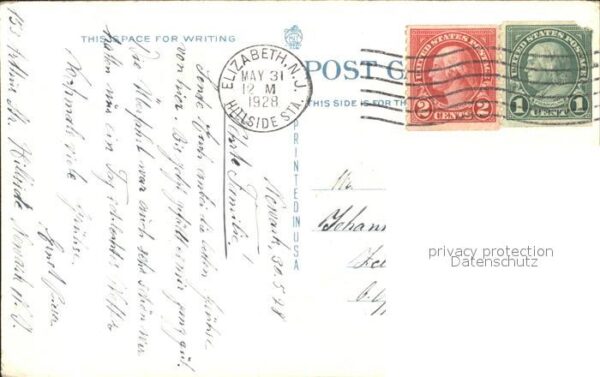 THIS SPACE FOR WRITING
POST CA
THIS SIDE IS FOR THE
PRINTED IN USA
ELIZABETH, N.J.
MAY 31
12 M
1928
HILLSIDE STA.
UNITED STATES POSTAGE
2 CENTS 2
UNITED STATES POSTAGE
1 CENT 1
Newark 30.5.28
Familie!
Sende Euch allen die besten Grüsse
von hier. Bis jetzt gefällt es mir ganz gut.
Die Überfahrt war auch sehr schön wir
hatten nur ein Tag schlechtes Wetter
Nochmals viele Grüsse
Hillside, Newark N.J.
Mr.
Johann
privacy protection
Datenschutz